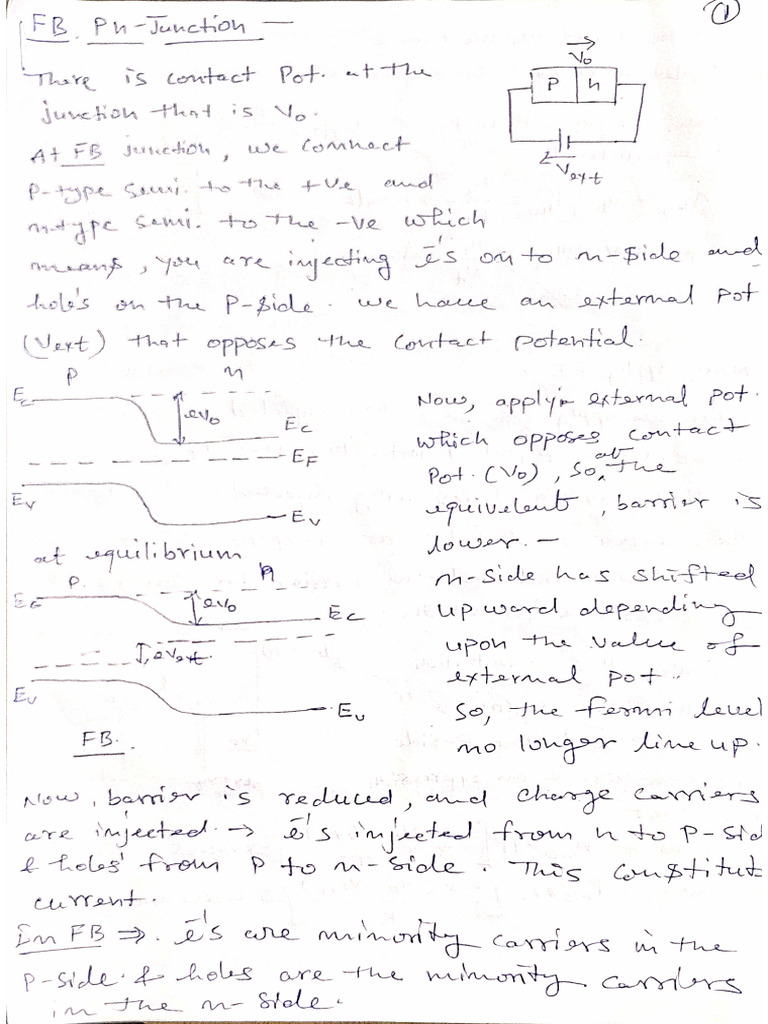 ①
FB. Pn-Junction —
There is contact Pot. at the
junction that is V₀.
At FB junction, we connect
P-type semi. to the +ve and
n-type semi. to the -ve which
means, you are injecting ē's on to n-side and
holes on the P-side. we have an external pot
(Vext) that opposes the contact potential.
V₀
P n
Vext
P n
Ec
eV₀
Ec
EF
Ev
Ev
at equilibrium
Now, apply external pot.
which opposes contact
Pot. (V₀), so, at the
equivelent, barrier is
lower. —
n-side has shifted
upward depending
upon the value of
external pot.
So, the fermi level
no longer line up.
P. n
eV₀
Ec
eVext
Ev
Ev
FB.
Now, barrier is reduced, and charge carriers
are injected → ē's injected from n to P-sid
& holes' from P to n-side. This constitut
current.
In FB ⇒. ē's are minority carriers in the
P-side. & holes are the minority carriers
in the n-side.